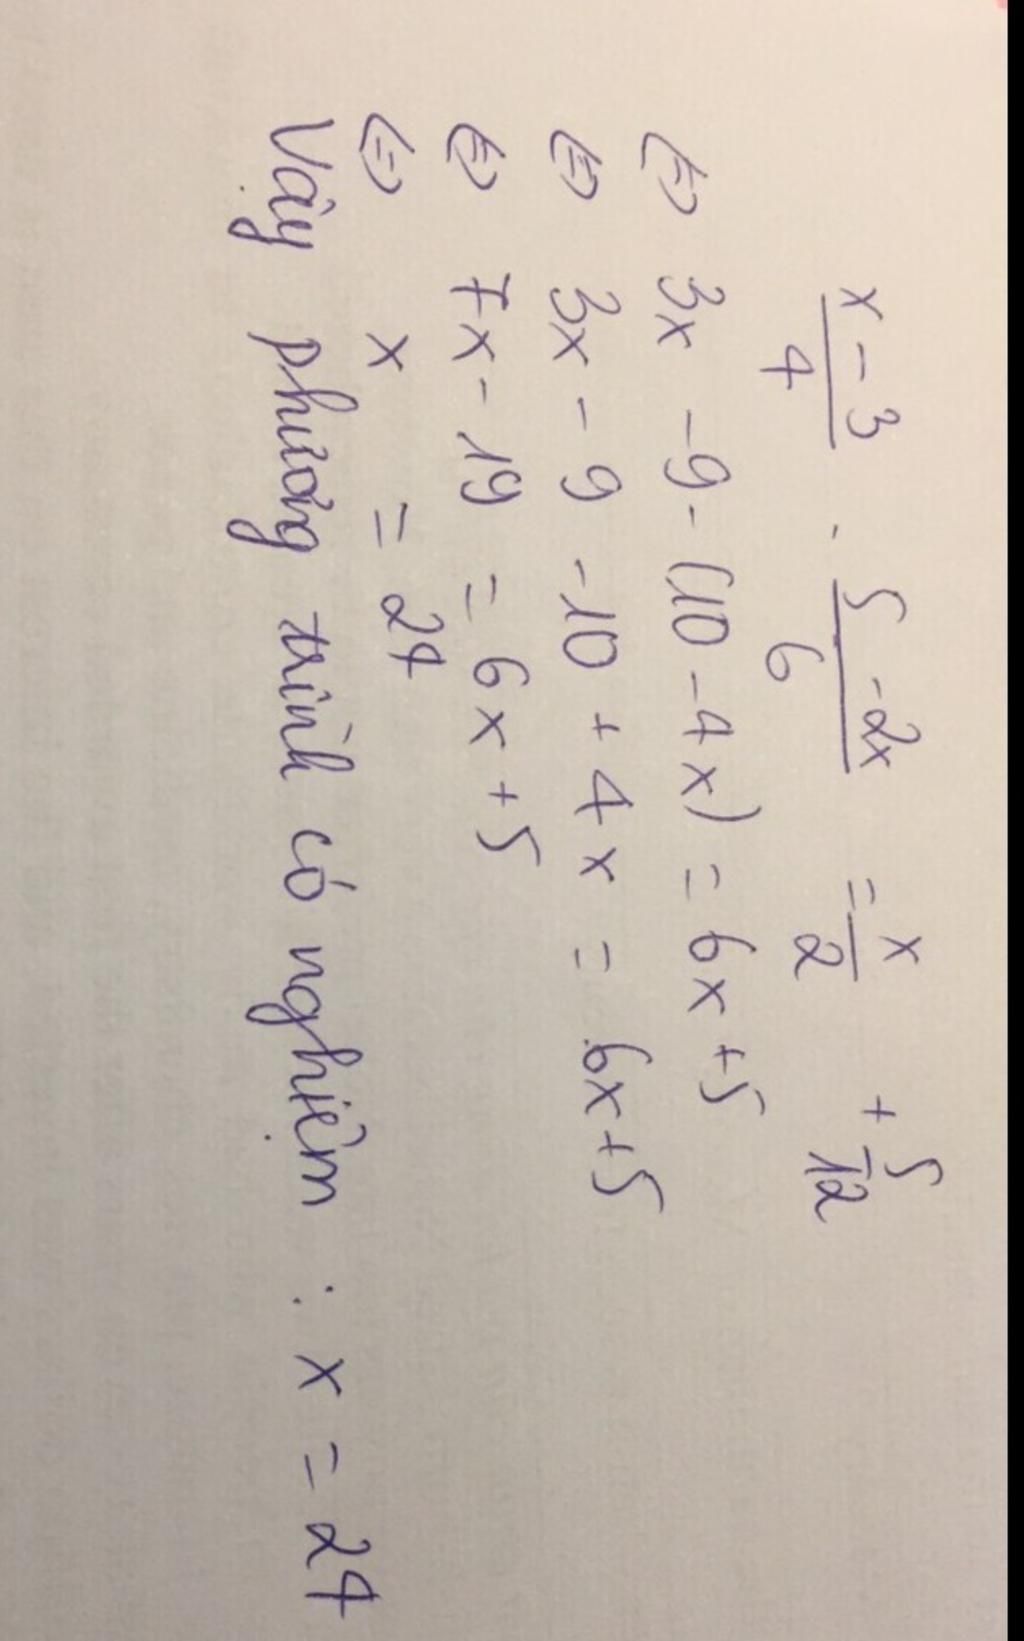 x - 3 / 4 - 5 - 2x / 6 = x / 2 + 5 / 12
<=> 3x - 9 - (10 - 4x) = 6x + 5
<=> 3x - 9 - 10 + 4x = 6x + 5
<=> 7x - 19 = 6x + 5
<=> x = 24
Vậy phương trình có nghiệm : x = 24